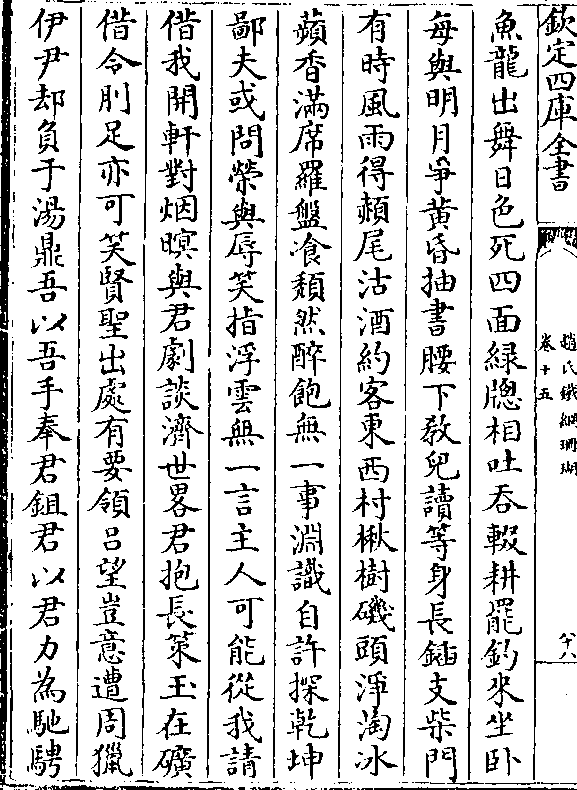 欽定四庫全書
趙氏鐵網珊瑚
卷十五
六
魚龍出舞日色死四面緑牕相吐吞輟耕罷釣來坐卧
每與明月爭黄昏抽書腰下敎兒讀等身長鍤支柴門
有時風雨得頳尾沽酒約客東西村楸樹磯頭淨淘冰
蘋香滿席羅盤飡頽然醉飽無一事淵識自許探乾坤
鄙夫或問榮與辱笑指浮雲無一言主人可能從我請
偕我開軒對烟暝與君劇談濟世畧君抱長策玉在礦
偕令刖足亦可笑賢聖出處有要領吕望豈意遭周獵
伊尹却負于湯鼎吾以吾手奉君鉏君以君力為馳騁